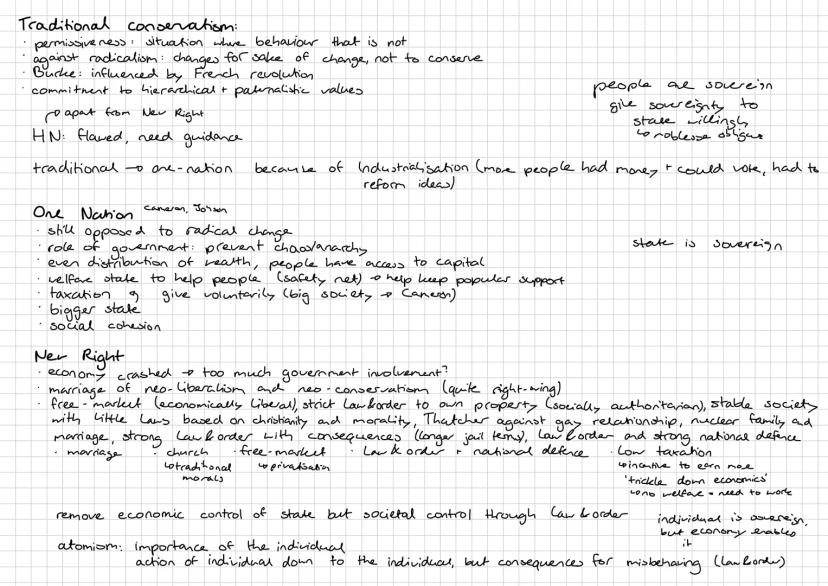 Traditional conservatism:
· permissiveness: situation where behaviour that is not
· against radicalism: changes for sake of change, not to conserve
· Burke: influenced by French revolution
· commitment to hierarchical + paternalistic values
people are sovereign
give sovereignty to
state willingly
↳ noblesse oblige
↱ apart from New Right
HN: flawed, need guidance
traditional → one-nation because of Industrialisation (more people had money + could vote, had to
reform ideas)
One Nation Cameron, Johson
· still opposed to radical change
· role of government: prevent chaos/anarchy
state is sovereign
· even distribution of wealth, people have access to capital
· welfare state to help people (safety net) → help keep popular support
· taxation give voluntarily (big society → Cameron)
· bigger state
· social cohesion
New Right
· economy crashed → too much government involvement?
· marriage of neo-liberalism and neo-conservatism (quite right-wing)
· free-market (economically liberal), strict law & order to own property (socially authoritarian), stable society
with little laws based on christianity and morality, Thatcher against gay relationship, nuclear family and
marriage, strong law & order with consequences (longer jail terms), law & order and strong national defence
· marriage · church · free-market · law & order + national defence · low taxation
↳ traditional morals
↳ privatisation
↳ incentive to earn more
'trickle down economics'
↳ no welfare = need to work
remove economic control of state but societal control through law & order
individual is sovereign,
but economy enables
it
atomism: importance of the individual
action of individual down to the individual, but consequences for misbehaving (law & order)